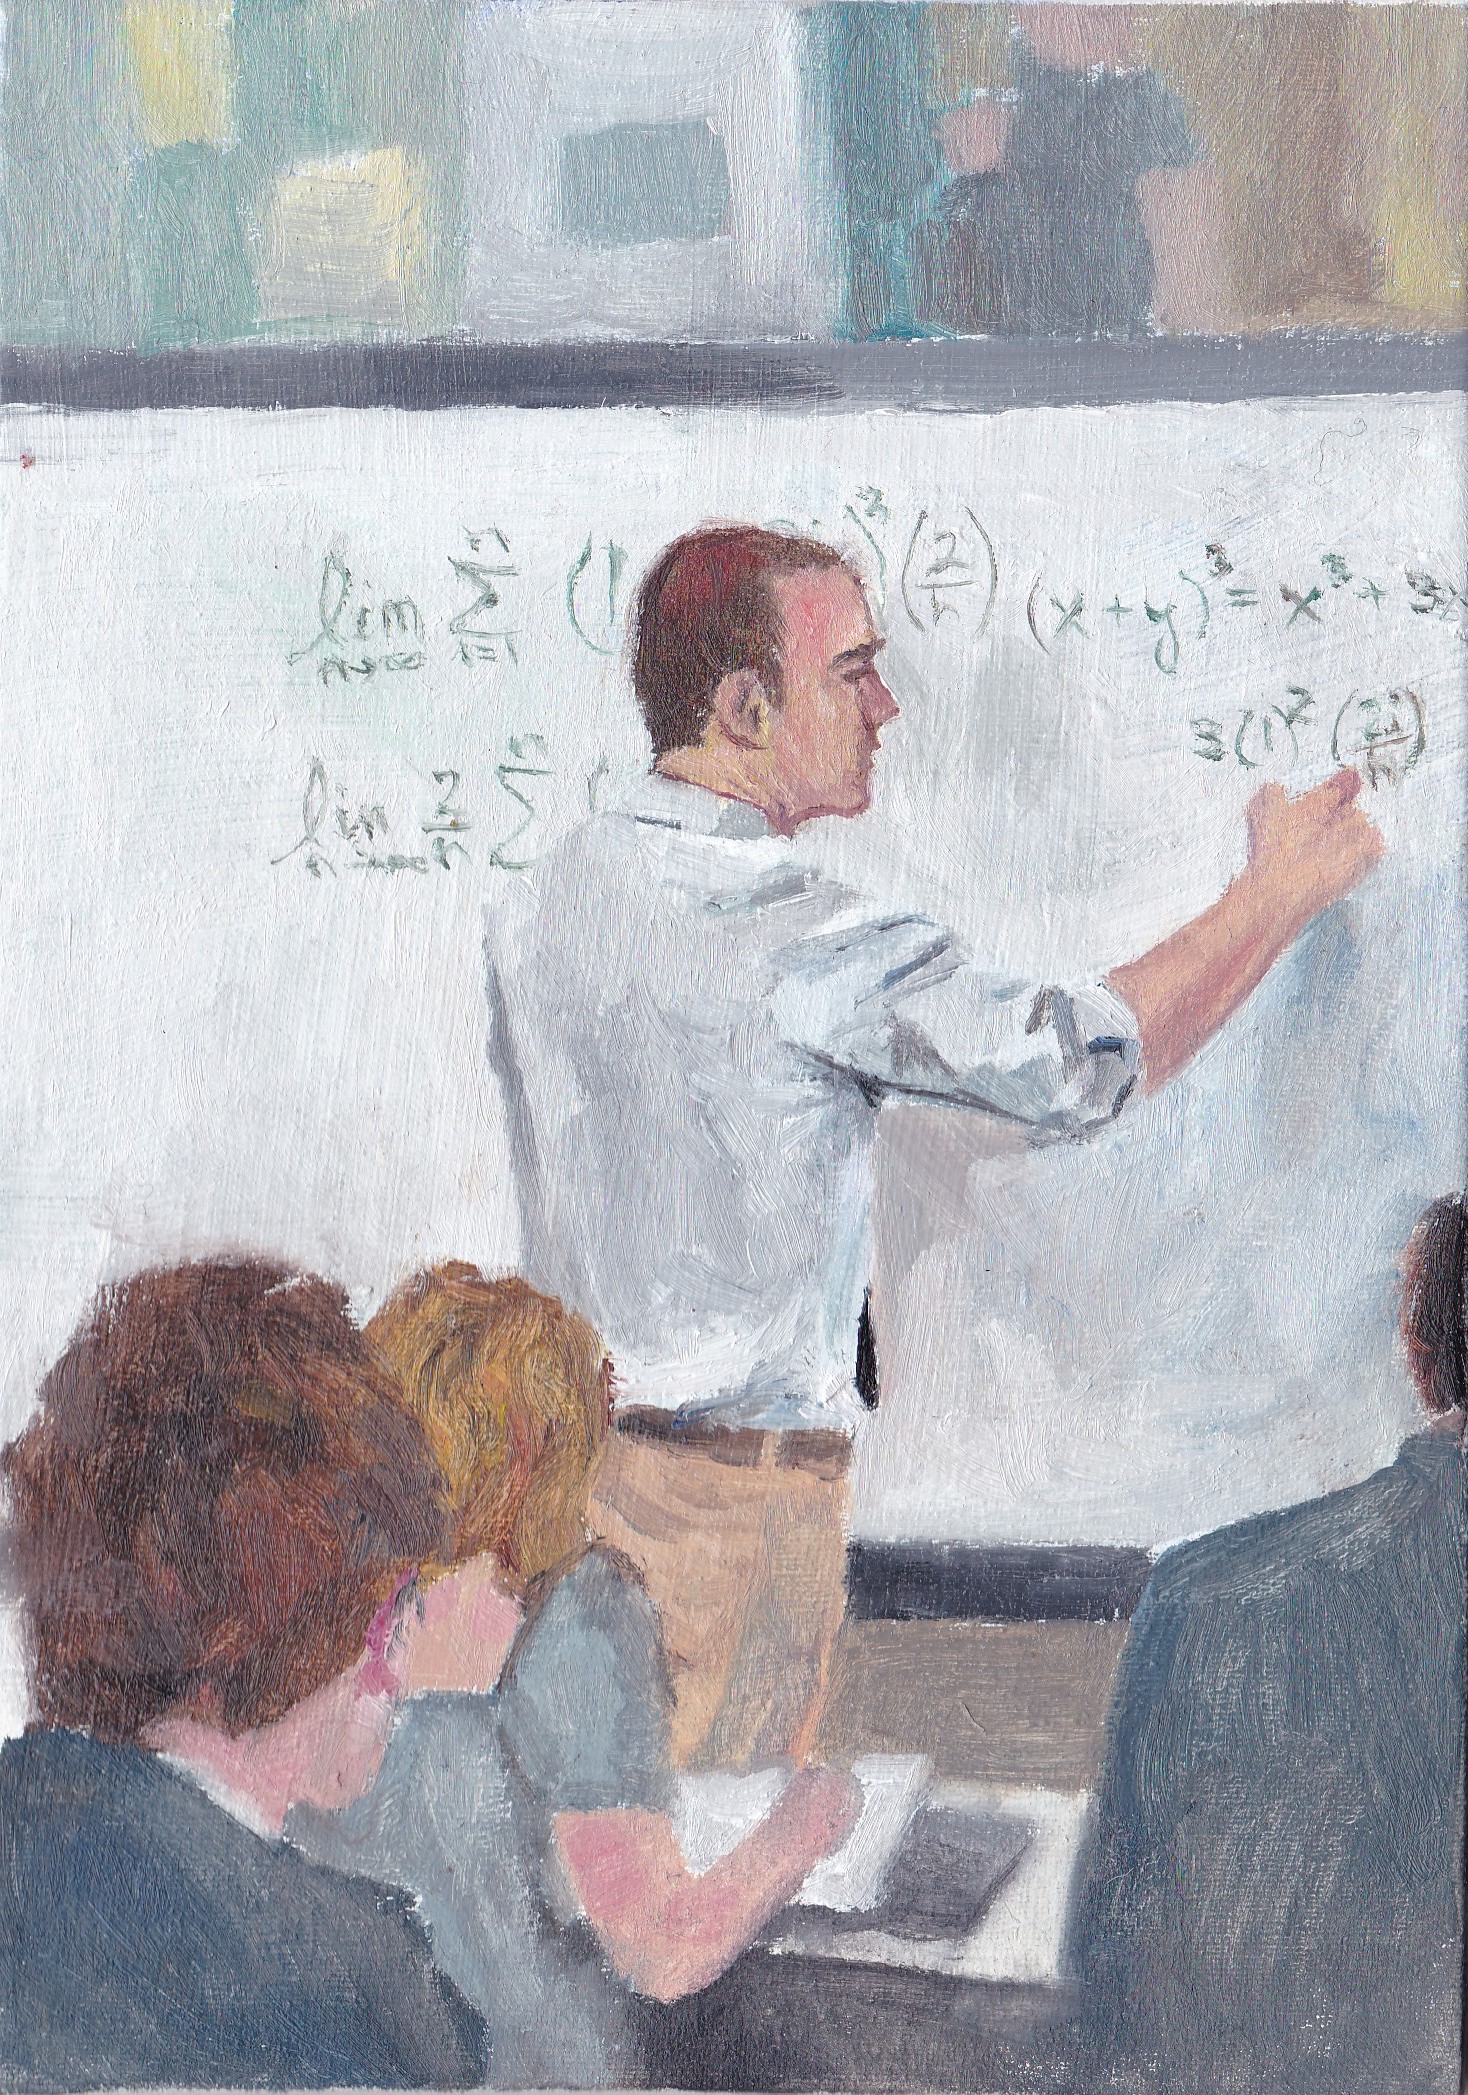 lim n→∞ Σ n i=1 (1 )³ (2/n) (x+y)³ = x³ + 3x
3(1)² (2i/n)
lim n→∞ 2/n Σ n (